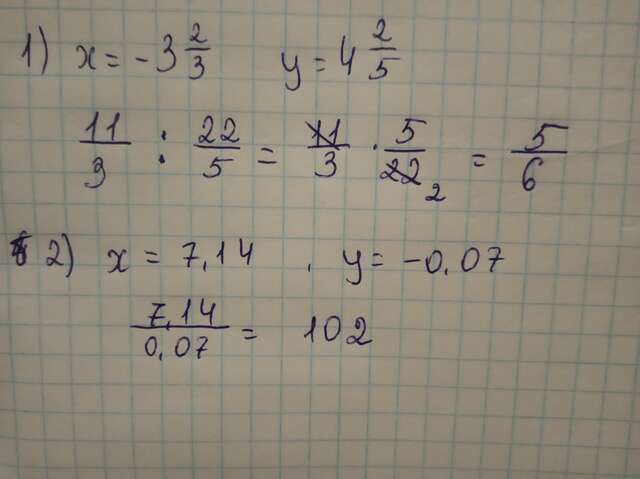 1) x = -3 2/3 y = 4 2/5
11/3 : 22/5 = 11/3 · 5/22 2 = 5/6
2) x = 7,14 , y = -0,07
7,14/0,07 = 102